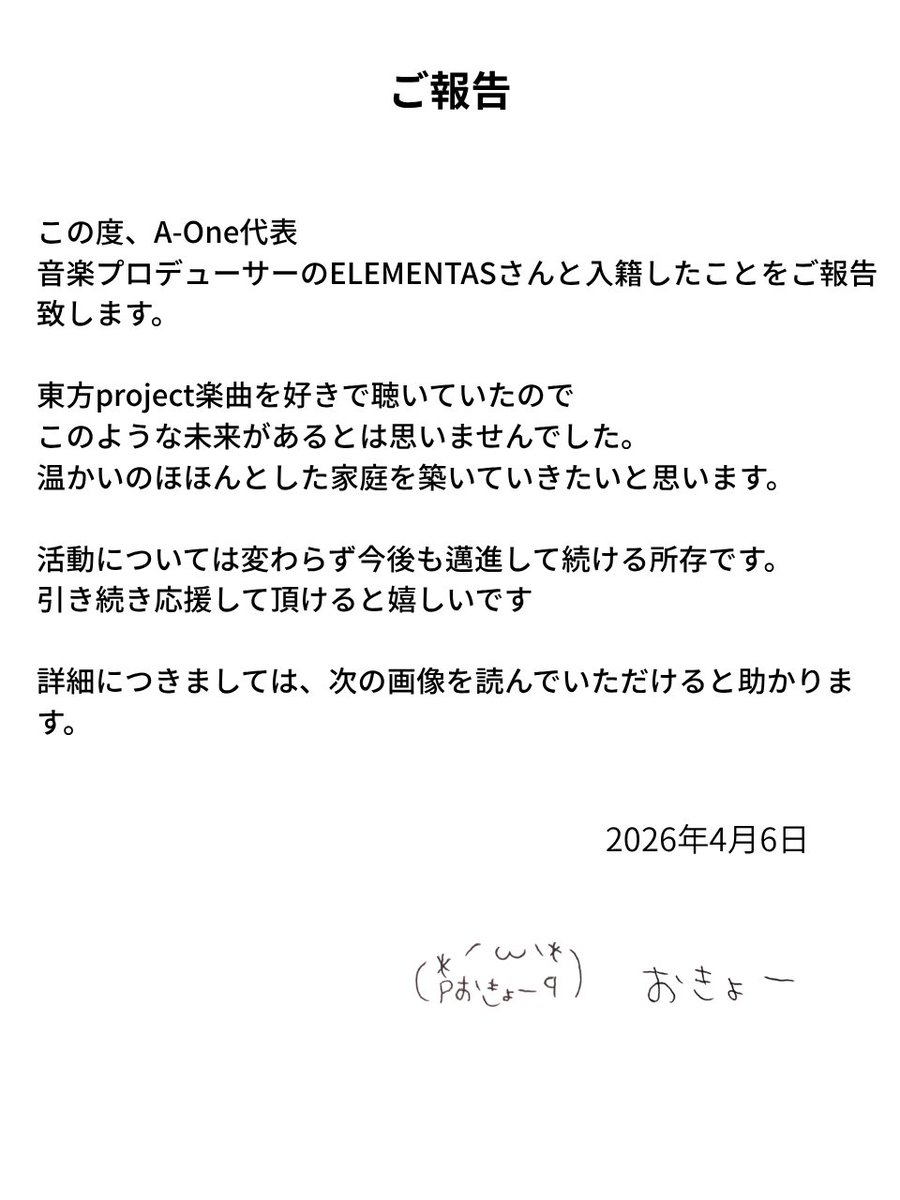 ご報告
この度、A-One代表
音楽プロデューサーのELEMENTASさんと入籍したことをご報告
致します。
東方project楽曲を好きで聴いていたので
このような未来があるとは思いませんでした。
温かいのほほんとした家庭を築いていきたいと思います。
活動については変わらず今後も邁進して続ける所存です。
引き続き応援して頂けると嬉しいです
詳細につきましては、次の画像を読んでいただけると助かりま
す。
2026年4月6日
(*´ω`*)
pおきょーq おきょー